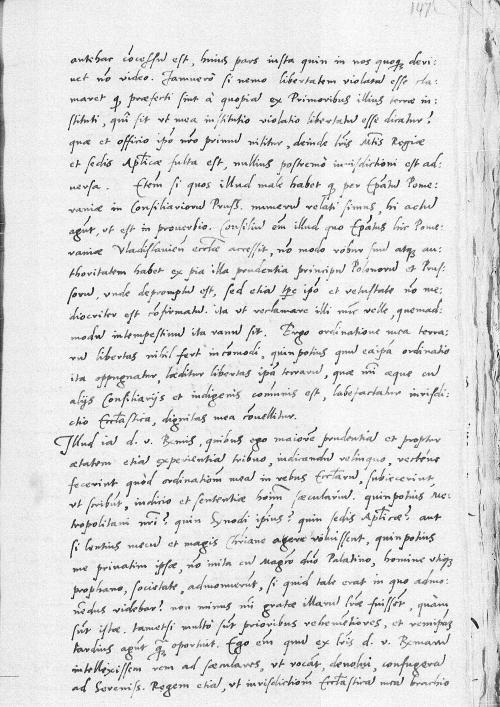 147
antehac cōcessū est, huius pars iusta quin in nos quoq; devi-
net nō video. Jamverò si nemo libertatem violatā esse cla-
maret q̄ præfecti sint à quopiā ex Primoribus illius terræ in-
stituti, quī fit ut mea institutio violatio libertatis esse dicatur?
quæ et officio ipō nrō primū nititur, deinde lr̄is Mtis Regiæ
et sedis Apticæ fulta est, nullius postremò iurisdictioni est ad-
versa. Etem si quos illud male habet q̄ per Epātū Pome-
raniæ in Consiliariorū Pruss. numerū relati simus, hi actū
agūt, ut est in proverbio. Consiliū em̄ illud quo Epātus hic Pome-
raniæ Vladislavieñ ecctæ accessit, nō modo robur suū atq; au-
thoritatem habet ex pia illa prudentia principū Polonorū et Prus-
sorū, unde depromptū est, sed etiā tpe ipō et vetustate nō me-
diocriter est cōfirmatū. ita ut reclamare illi nūc velle, quemad-
modū intempestivū ita vanū sit. Ergo ordinatione mea terra-
rū libertas nihil fert incōmodi, quinpotius quū ea ipsa ordinatio
ita oppugnatur, læditur libertas ipsā terrarū, quæ mī æque cū
alijs Consiliarijs et indigenis cōmunis est, labefactatur iurisdi-
ctio Ecctastica, dignitas mea cōvellitur.
Illud iā d. v. Rmis, quibus ego maiorē prudentiā et propter
ætatem etiā experientiā tribuo, iudicandū relinquo, rectene
fecerint quod ordinationē meā in rebus Ecctarū, subiecerint,
ut scribūt, iudicio et sententiæ hoīm̄ sæculariū. quinpotius Me-
tropolitani nrī? quin Synodi ipsius? quin sedis Apticæ? aut
si lentius mecū et magis Chrīane agere voluissent, quinpotius
me privatim ipsæ, nō iuncta cū Magco dn̄o Palatino, homine utiq;
prophano, societate, admonuerint, si quid tale erat in quo admo-
nēdus videbar? non minus mī gratæ illarū lr̄æ fuissēt, quàm
sūt istæ. tametsi multò sūt prioribus vehemētiores, et nempe
tardius agūt quàm oportuit. Ego em̄ quū ex lr̄is d. v. Rmarū
intellexissem rem ad sæculares, ut vocāt, devolvi, confugere
ad Sereniss. Regem etiā, ut iurisdictionē Ecctasticā meā brachio